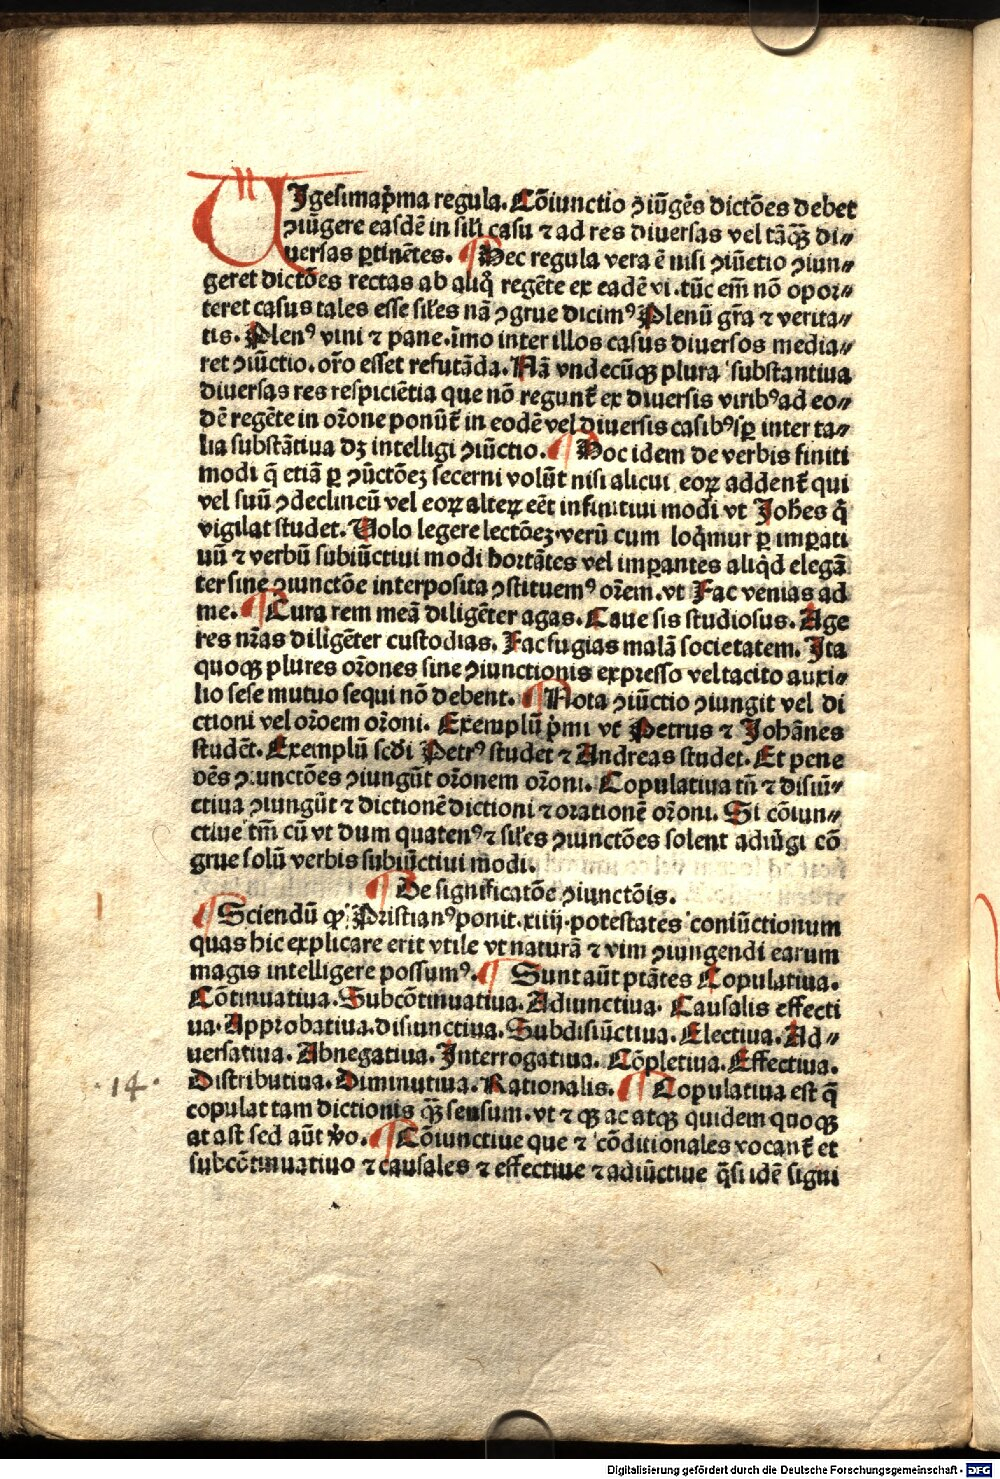 VJgesimap̄ma regula. Cōiunctio ꝯiūgēs dictōes debet
ꝯiūgere easdē in sil̄i casu ⁊ ad res diuersas vel tāꝙ̄ di⸗
uersas ꝑtinētes. ¶ Hec regula vera ē nisi ꝯiūctio ꝯiun⸗
geret dictōes rectas ab aliq̊ regēte ex eadē vi. tūc em̄ nō opor⸗
teret casus tales esse sil̄es nā ꝯgrue dicimꝰ Plenū gr̄a ⁊ verita⸗
tis. Plenꝰ vini ⁊ pane. īmo inter illos casus diuersos media⸗
ret ꝯiūctio. or̄o esset refutāda. Nā vndecūqꝫ plura substantiua
diuersas res respiciētia que nō regunt̄ ex diuersis viribꝰ ad eo⸗
dē regēte in or̄one ponūt̄ in eodē vel diuersis casibꝰ sꝑ inter ta⸗
lia substātiua dꝫ intelligi ꝯiūctio. ¶ Hoc idem de verbis finiti
modi q̄ etiā ꝑ ꝯiūctōeꝫ secerni volūt nisi alicui eoꝝ addent̄ qui
vel suū ꝯdeclineū vel eoꝝ alteꝝ eēt infinitiui modi vt Joh̄es q̄
vigilat studet. Uolo legere lectōeꝫ. verū cum loq̄mur ꝑ imꝑati
uū ⁊ verbū subiūctiui modi hortātes vel imꝑantes aliq̄d elegā
ter sine ꝯiunctōe interposita ꝯstituemꝰ or̄em. vt Fac venias ad
me. ¶ Cura rem meā diligēter agas. Caue sis studiosus. Age
res nr̄as diligēter custodias. Fac fugias malā societatem. Ita
quoqꝫ plures or̄ones sine ꝯiunctionis expresso vel tacito auxi⸗
lio sese mutuo sequi nō debent. ¶ Nota ꝯiūctio ꝯiungit vel di
ctioni vel or̄oem or̄oni. Exemplū p̄mi vt Petrus ⁊ Johānes
studēt. Exemplū scd̄i Petrꝰ studet ⁊ Andreas studet. Et pene
oēs ꝯiunctōes ꝯiungūt or̄onem or̄oni. Copulatiua tn̄ ⁊ disiū⸗
ctiua ꝯiungūt ⁊ dictionē dictioni ⁊ orationē or̄oni. Si cōiun⸗
ctiue tm̄ cū vt dum quatenꝰ ⁊ sil̄es ꝯiunctōes solent adiūgi cō
grue solū verbis subiūctiui modi.
¶ De significatōe ꝯiunctōis.
¶ Sciendū ꝙ Pristianꝰ ponit. xiiij. potestates coniūctionum
quas hic explicare erit vtile vt naturā ⁊ vim ꝯiungendi earum
magis intelligere possumꝰ. ¶ Sunt aūt ptātes Copulatiua.
Cōtinuatiua. Subcōtinuatiua. Adiunctiua. Causalis effecti
ua. Approbatiua. disiunctiua. Subdisiūctiua. Electiua. Ad⸗
uersatiua. Abnegatiua. Interrogatiua. Cōpletiua. Effectiua.
Distributiua. Diminutiua. Rationalis. ¶ Copulatiua est q̄
·14·
copulat tam dictionis ꝙ̄ sensum. vt ⁊ qꝫ ac atqꝫ quidem quoqꝫ
at ast sed aūt v̄o. ¶ Cōiunctiue que ⁊ cōditionales vocant̄ et
subcōtinuatiuo ⁊ causales ⁊ effectiue ⁊ adiūctiue q̄si idē signi
Digitalisierung gefördert durch die Deutsche Forschungsgemeinschaft - DFG